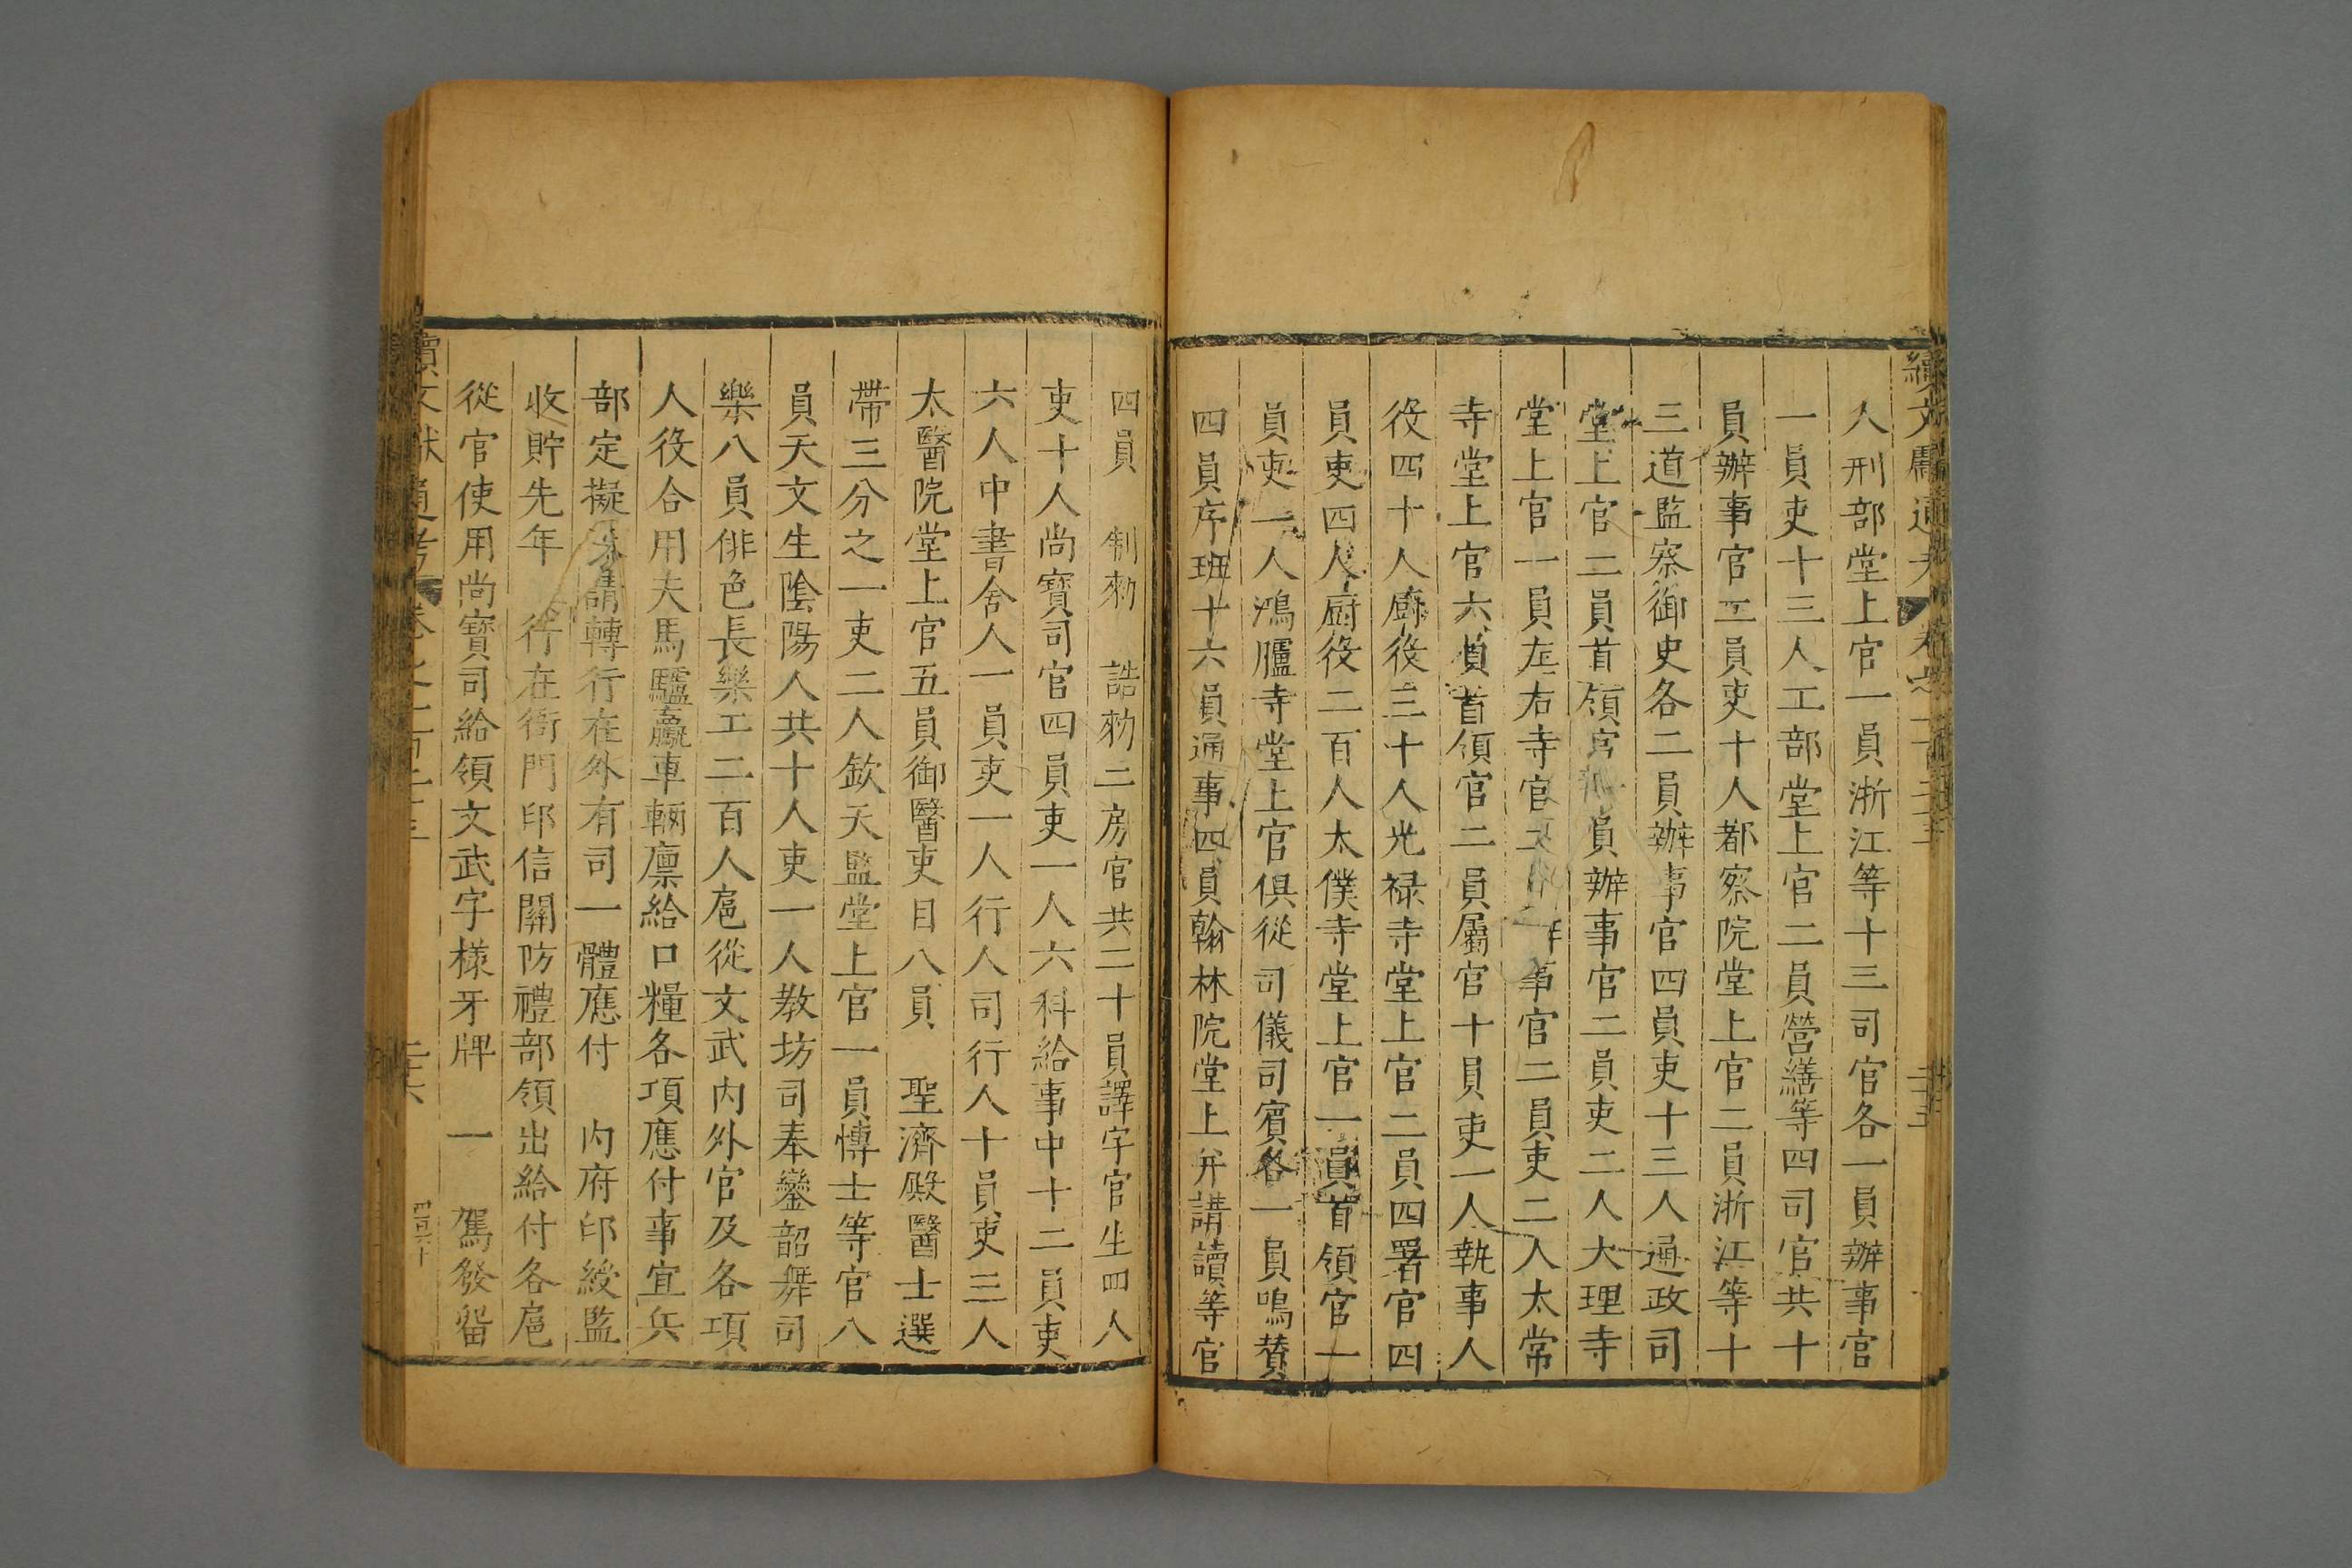 續文獻通考 卷之一百二十三 二十五
人刑部堂上官一員浙江等十三司官各一員辦事官
一員吏十三人工部堂上官二員營繕等四司官共十
員辦事官二員吏十人都察院堂上官二員浙江等十
三道監察御史各二員辦事官四員吏十三人通政司
堂上官二員首領官員辦事官二員吏二人大理寺
堂上官一員左右寺官事官二員吏二人太常
寺堂上官六員首領官二員屬官十員吏一人執事人
役四十人廚役三十人光祿寺堂上官二員四署官四
員吏四人廚役二百人太僕寺堂上官一員首領官一
員吏一人鴻臚寺堂上官俱從司儀司賓各一員鳴贊
四員序班十六員通事四員翰林院堂上并講讀等官
四員 制勑 誥勑二房官共二十員譯字官生四人
吏十人尚寶司官四員吏一人六科給事中十二員吏
六人中書舍人一員吏一人行人司行人十員吏三人
太醫院堂上官五員御醫吏目八員 聖濟殿醫士選
帶三分之一吏二人欽天監堂上官一員博士等官八
員天文生陰陽人共十人吏一人教坊司奉鑾韶舞司
樂八員俳色長樂工二百人扈從文武內外官及各項
人役合用夫馬驢驘車輛廩給口糧各項應付事宜兵
部定擬請轉行在外有司一體應付 內府印綬監
收貯先年 行在衙門印信關防禮部領出給付各扈
從官使用尚寶司給領文武字樣牙牌 一 駕發留
續文獻通考 卷之一百二十三 二十六